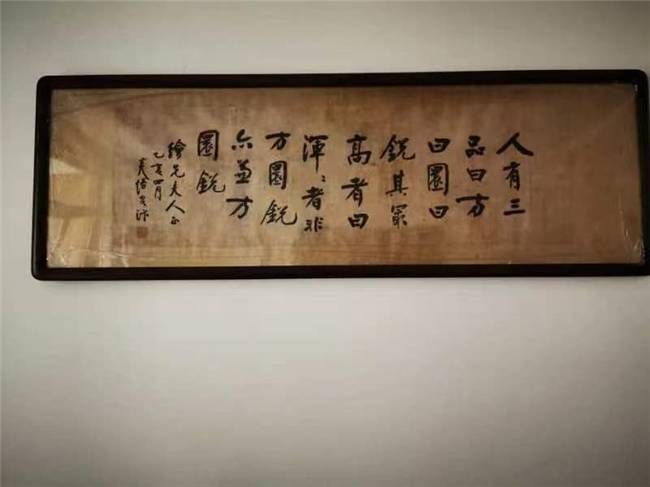 人有三
品曰方
曰圓曰
銳其最
高者曰
渾渾者非
方圓銳
亦兼方
圓銳
繪兄夫人正
乙亥四月